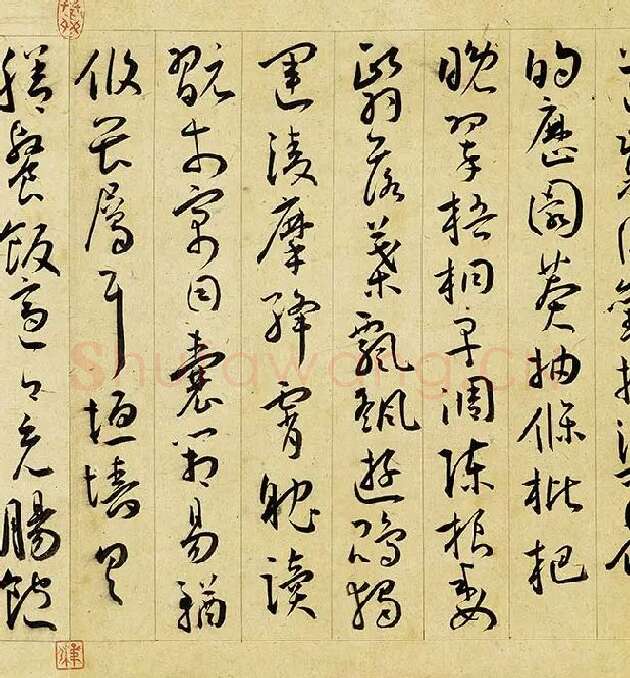 的歷園莽抽條枇杷
晚翠梧桐早凋陳根委
翳落葉飄颻遊鵾獨
運凌摩絳霄耽讀
翫市寓目囊箱易輶
攸畏屬耳垣牆具
膳餐飯適口充腸飽
Shufawang.cn